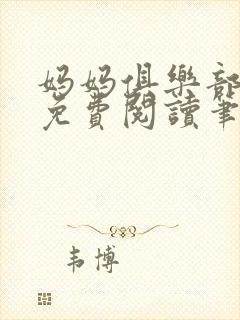 妈妈俱樂部
免費閱讀筆
韦博